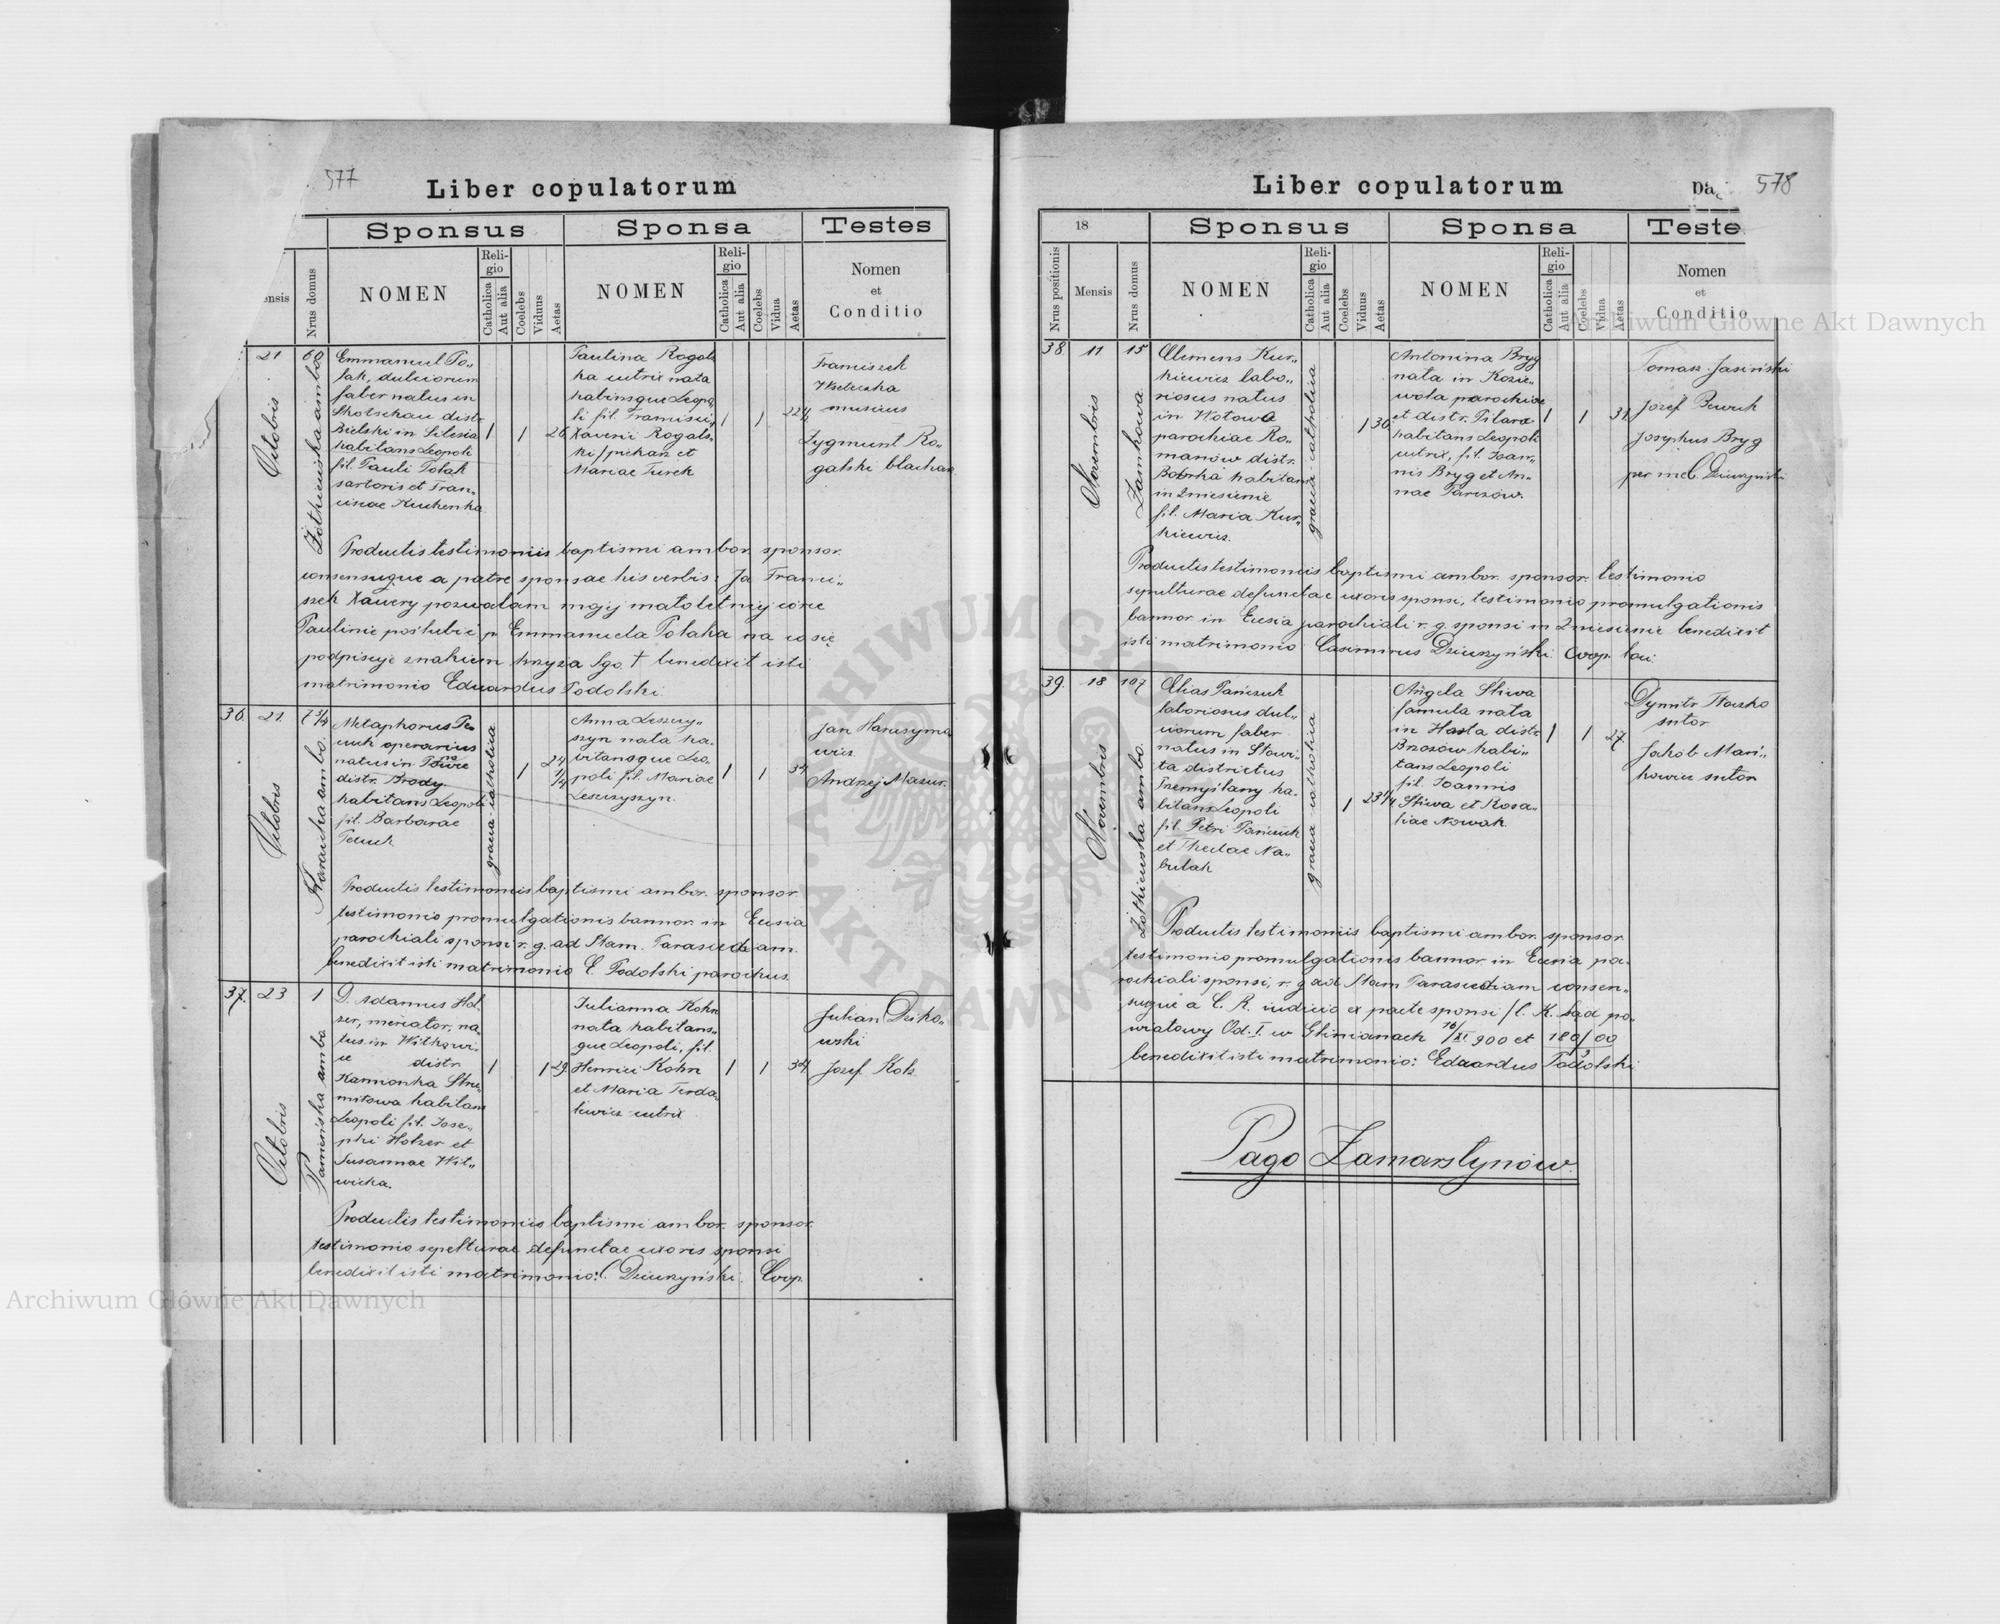 577
Liber copulatorum
Sponsus
Sponsa
Testes
Nrus domus
NOMEN
Religio
Catholica
Aut alia
Coelebs
Viduus
Aetas
NOMEN
Religio
Catholica
Aut alia
Coelebs
Vidua
Aetas
Nomen
et
Conditio
21
Octobris
60
Żółkiewska ambo
Emmanuel Po„
lak, dulciorum
faber natus in
Skotschau distr.
Bielski in Silesia
habitans Leopoli
fil. Pauli Polak
sartoris et Fran„
ciscae Kuchenka
1
1
26
Paulina Rogals
ka cutrix nata
habinsque Leopo„
li fil. Francisci
Xaverii Rogals„
ki piekarz et
Mariae Turek
1
1
22
Franciszek
musicus
Zygmunt Ro„
galski blacharz
Productis testimoniis baptismi ambor. sponsor.
consensuque a patre sponsae his verbis: Ja Franci„
szek Xawery pozwalam mojej małoletniej córce
Paulinie poślubić p. Emmanuela Polaka na co się
podpisuję znakiem krzyża Sgo. † benedixit isti
matrimonio Eduardus Podolski
36.
21.
Octobris
ambo.
Metaphorus Pe
cuch operarius
natus in
distr. Brody
habitans Leopoli
fil. Barbarae
Pecuch
graeca-catholica
1
24
1/4
Anna Leszczy„
szyn nata ha„
bitansque Leo„
poli fil. Mariae
Leszczyszyn.
1
1
34
Jan Harasymo
wicz
Andrzej Mazur.
Productis testimoniis baptismi ambor. sponsor
testimonio promulgationis bannor. in Ecclesia
parochiali sponsi r. g. ad Stam. Parascedeam.
benedixit isti matrimonio E. Podolski parochus.
37.
23
Octobris
1
ambo
D. Adamus Hol„
zer, mercator, na„
tus in Witkowi„
ce distr.
Kamionka Stru„
miłowa habitans
Leopoli fil. Jose„
phi Holzer et
Susannae Wit„
wicka.
1
1
29.
Julianna Kohn
nata habitans„
que Leopoli, fil.
Henrici Kohn
et Maria Terda„
kiewicz cutrix
1
1
34
Julian Desko„
wski
Józef Kolz
Productis testimoniis baptismi ambor. sponsor.
testimonio sepelturae defunctae uxoris sponsi
benedixit isti matrimonio: C. Dziurzyński. Coop.
Liber copulatorum
578
18
Sponsus
Sponsa
Teste
Nrus positionis
Mensis
Nrus domus
NOMEN
Religio
Coelebs
Viduus
Aetas
NOMEN
Religio
Catholica
Aut alia
Coelebs
Vidua
Aetas
Nomen
et
Conditio
38.
11
Novembris
15
Zamkowa
Clemens Kur„
kiewicz labo„
riosus natus
in Wołowe
parochiae Ro„
manów distr.
Bobrka habitans
in Zniesienie
fil. Maria Kur„
kiewicz.
graeca-catholica
1
30.
Antonina Bryg
nata in Kozie„
wola parochiae
et distr. Pilzno
habitans Leopoli
cutrix, fil. Joan„
nis Bryg et An„
nae Parszów.
1
1
31.
Tomasz Jasiński
Józef
Josephus Bryg
per me C. Dziurzyński
Productis testimoniis baptismi ambor. sponsor. testimonio
sepulturae defunctae uxoris sponsi, testimonio promulgationis
bannor. in Ecclesia parochiali r. g. sponsi in Zniesienie benedixit
isti matrimonio Casimirus Dziurzyński. Coop. loci.
39.
18
Novembris
107
Żółkiewska ambo.
Elias Pańczuk
laboriosus dul„
ciorum faber
natus in Słowi„
ta districtus
Przemyślany ha„
bitans Leopoli
fil. Petri Pańczuk
et Theclae Na„
bulak
graeca-catholica
1
23 1/4
Angela Śliwa
famula nata
in distr.
Brzozów habi„
tans Leopoli
fil. Joannis
Śliwa et Rosa„
liae Nowak.
1
1
27.
Dymitr
sutor
Jakób Mań„
kowicz sutor
Productis testimoniis baptismi ambor. sponsor.
testimonio promulgationis bannor. in Ecclesia pa„
rochiali sponsi, r. g. ad Stam Parascediam consen„
suque a C. R. iudicio ex parte sponsi / C. K. Sąd po„
wiatowy Od. I. w Glinianach 16/XI 900 et
benedixit isti matrimonio: Eduardus Podolski
Pago Zamarstynów.
Archiwum Główne Akt Dawnych
Archiwum Główne Akt Dawnych
ARCHIWUM GŁÓWNE AKT DAWNYCH